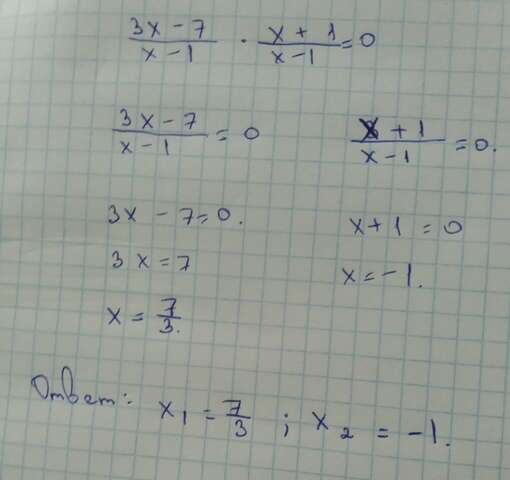 (3x - 7)/(x - 1) · (x + 1)/(x - 1) = 0
(3x - 7)/(x - 1) = 0
(x + 1)/(x - 1) = 0.
3x - 7 = 0.
x + 1 = 0
3x = 7
x = -1.
x = 7/3.
Ответ: x₁ = 7/3 ; x₂ = -1.